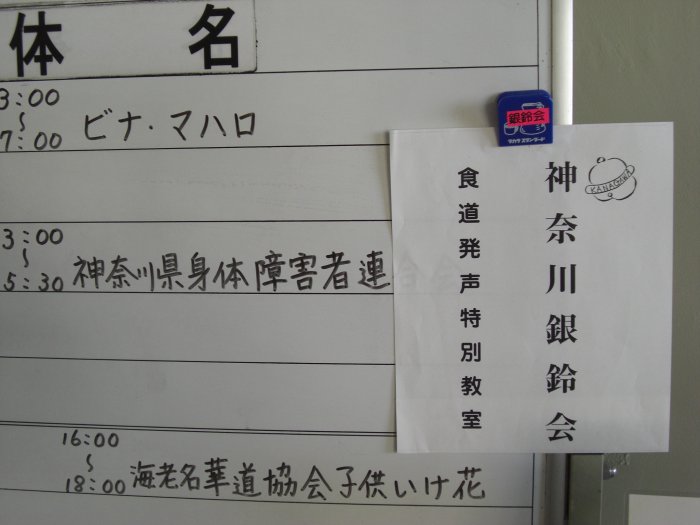 体 名
3:00
~
7:00
ビナ・マハロ
3:00
~
5:30
神奈川県身体障害者連合会
16:00
~
18:00
海老名華道協会子供いけ花
銀鈴会
タカラスタンダード
KANAGAWA
神奈川銀鈴会
食道発声特別教室